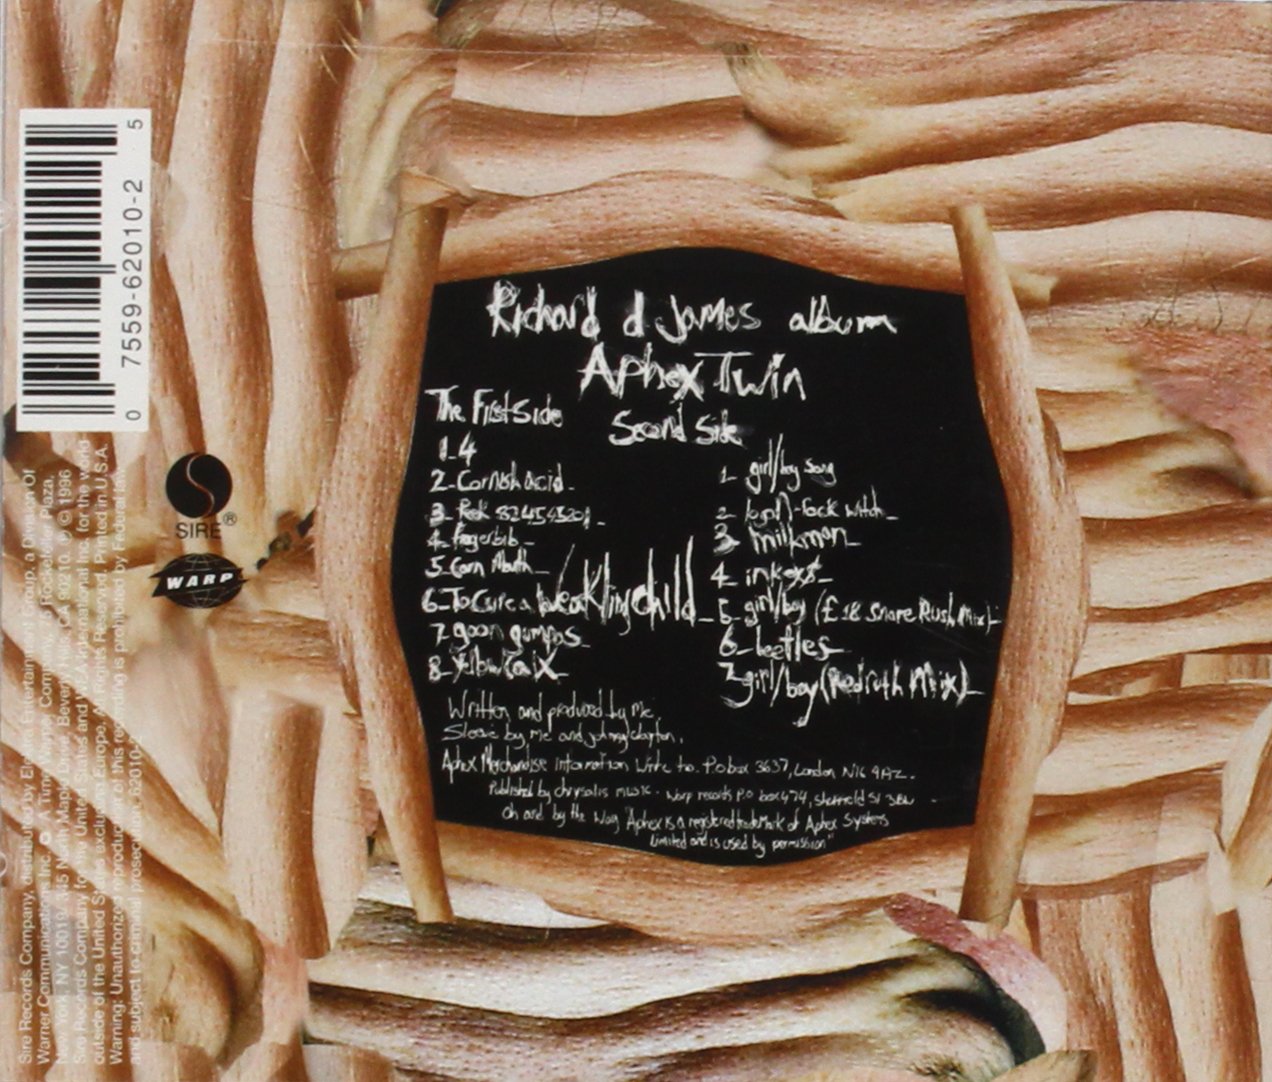 Richard d James album
Aphex Twin
The First Side
1_4
2_Cornish acid_
3_Peek 82454320l_
4_fingerbib_
5_Corn Mouth_
6_To Cure a Weakling Child_
7_goon gumpas_
8_yellow calx_
Second Side
1_ girl/boy song
2_ logon-rock witch_
3_ milkman_
4_ inkeys_
5_ girl/boy (£18 snare Rush Mix)_
6_ beetles_
7_girl/boy (Redruth Mix)_
Written and produced by Me,
Sleeve by me and johnny clayton.
Aphex Merchandise information Write to. P.O box 3637, London N16 9AZ_
Published by chrysalis music. warp records p.o box 474, sheffield S1 3BW
oh and by the way "Aphex is a registered trademark of Aphex Systems
Limited and is used by permission"
0 7559-62010-2 5
SIRE®
WARP
Sire Records Company, distributed by Elektra Entertainment Group, a Division Of
Warner Communications Inc. A Time Warner Company, 75 Rockefeller Plaza,
New York, NY 10019. 345 North Maple Drive, Beverly Hills, CA 90210. ℗ © 1996
Sire Records Company for the United States and WEA International Inc. for the world
outside of the United States excluding Europe. All Rights Reserved. Printed in U.S.A.
Warning: Unauthorized reproduction of this recording is prohibited by Federal law
and subject to criminal prosecution. 62010-2